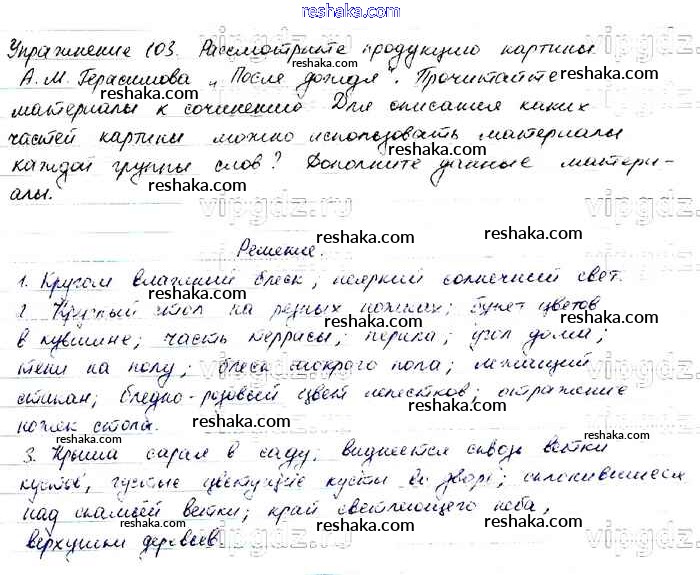 reshaka.com
Упражнение 103. Рассмотрите продукцию картины
А. М. Герасимова „После дождя". Прочитайте
материалы к сочинению Для описания каких
частей картины можно использовать материалы
каждой группы слов? Дополните данные матери-
алы.
Решение.
1. Кругом влажный блеск, неяркий солнечный свет.
2. Круглый стол на резных ножках; букет цветов
в кувшине; часть террасы; перила; угол дома;
тени на полу; блеск мокрого пола; лежащий
стакан; бледно-розовый цвет лепестков; отражение
ножек стола.
3. Крыша сарая в саду; виднеется сквозь ветки
кустов, густые цветущие кусты во дворе; склонившиеся
над скамьей ветки; край светлеющего неба,
верхушки деревьев.